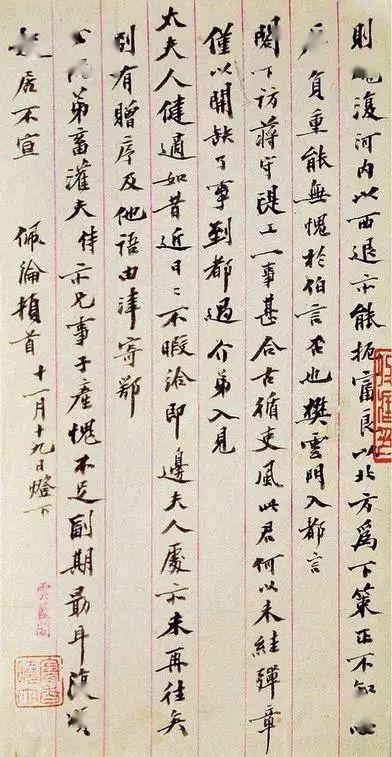 則復河內以西退亦能扼富良以北方爲下策正不知
負重能無愧於伯言否也樊雲門入都言
閣下訪蔣守隄工一事甚合古循吏風此君何以未絓彈章
僅以開缺了事到都過介弟入見
太夫人健適如昔近日:不暇給即邊夫人處亦未再往矣
別有贈序及他語由津寄鄂
弟畜灌夫侍亦兄事子產愧不足副期勗耳復頌
居不宣 佩綸頓首 十一月十九日燈下
雲藍閣